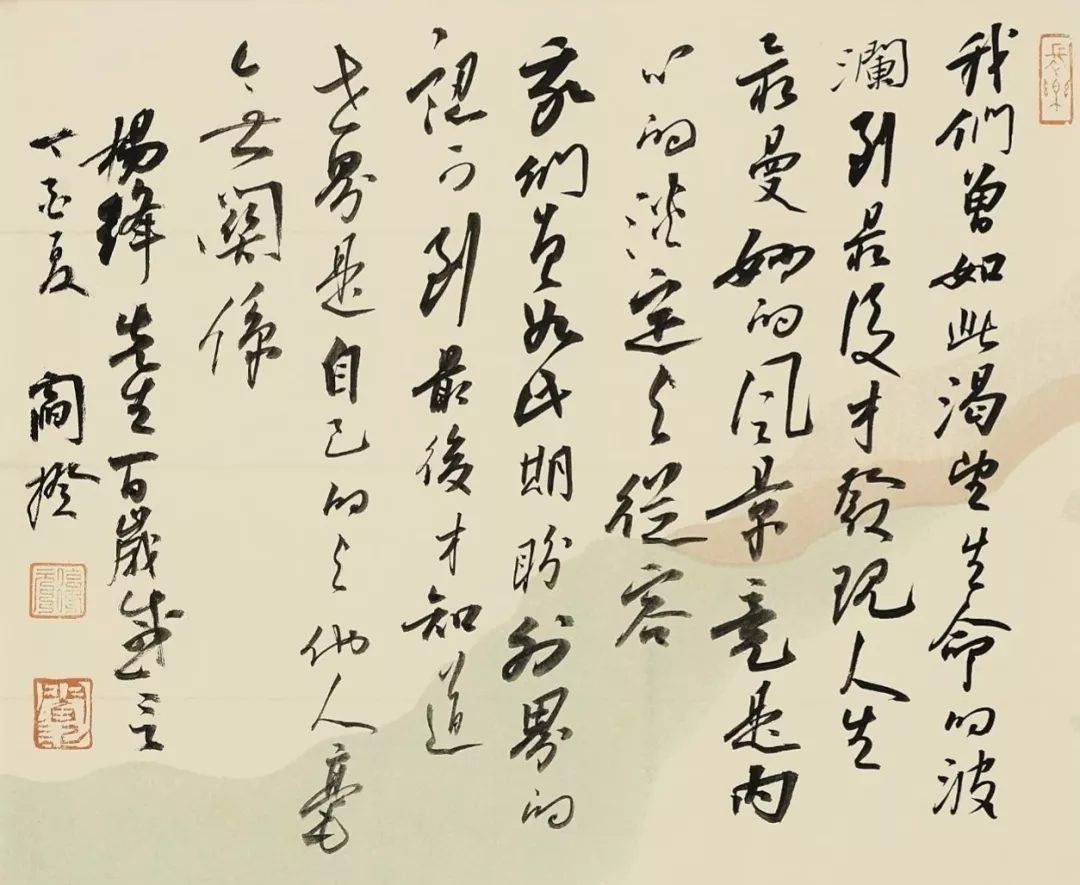 我們曾如此渴望生命的波
瀾到最後才發現人生
最曼妙的風景竟是內
心的淡定与從容
我們曾如此期盼外界的
認可到最後才知道
世界是自己的与他人毫
無關係
楊絳先生百歲感言
丁酉夏 閻揆
長樂